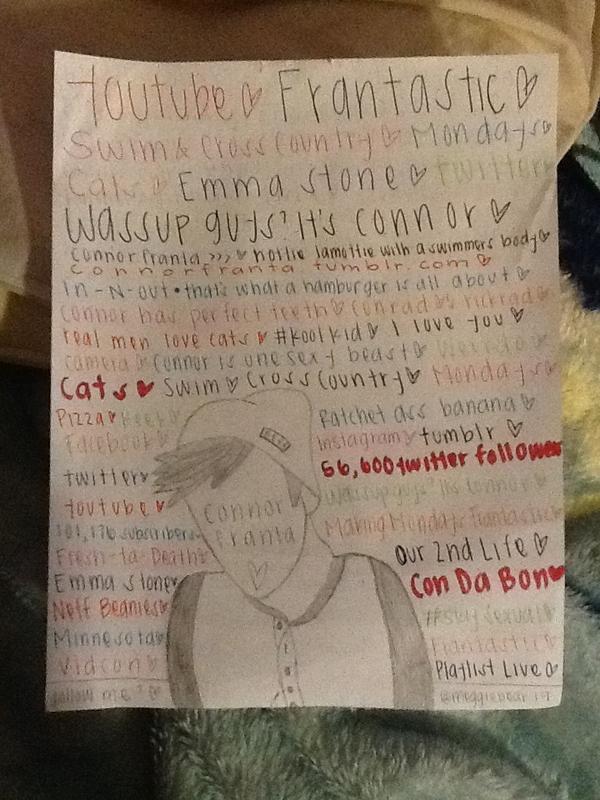 Youtube Frantastic
Swim & Cross Country Mondays
Cats Emma Stone Twitter
Wassup guys? It's Connor
Connor Franta >>>> hottie lamottie with a swimmers body
connorfranta tumblr.com
In-N-Out • that's what a hamburger is all about
Connor has perfect teeth Conrad
real men love cats #koolkid I love you
camera Connor is one sexy beast Weirdo
Cats Swim Cross Country Mondays
Pizza
Facebook
twitter
Youtube
subscribers
Fresh-to-Death
Emma Stone
Neff Beanies
Minnesota
Vidcon
follow me
Connor
Franta
Ratchet ass banana
Instagram tumblr
56,600 twitter follower
Wassup guys It's Connor
Making Mondays Frantastic
Our 2nd Life
Con Da Bon
#StaySexual
Frantastic
Playlist Live